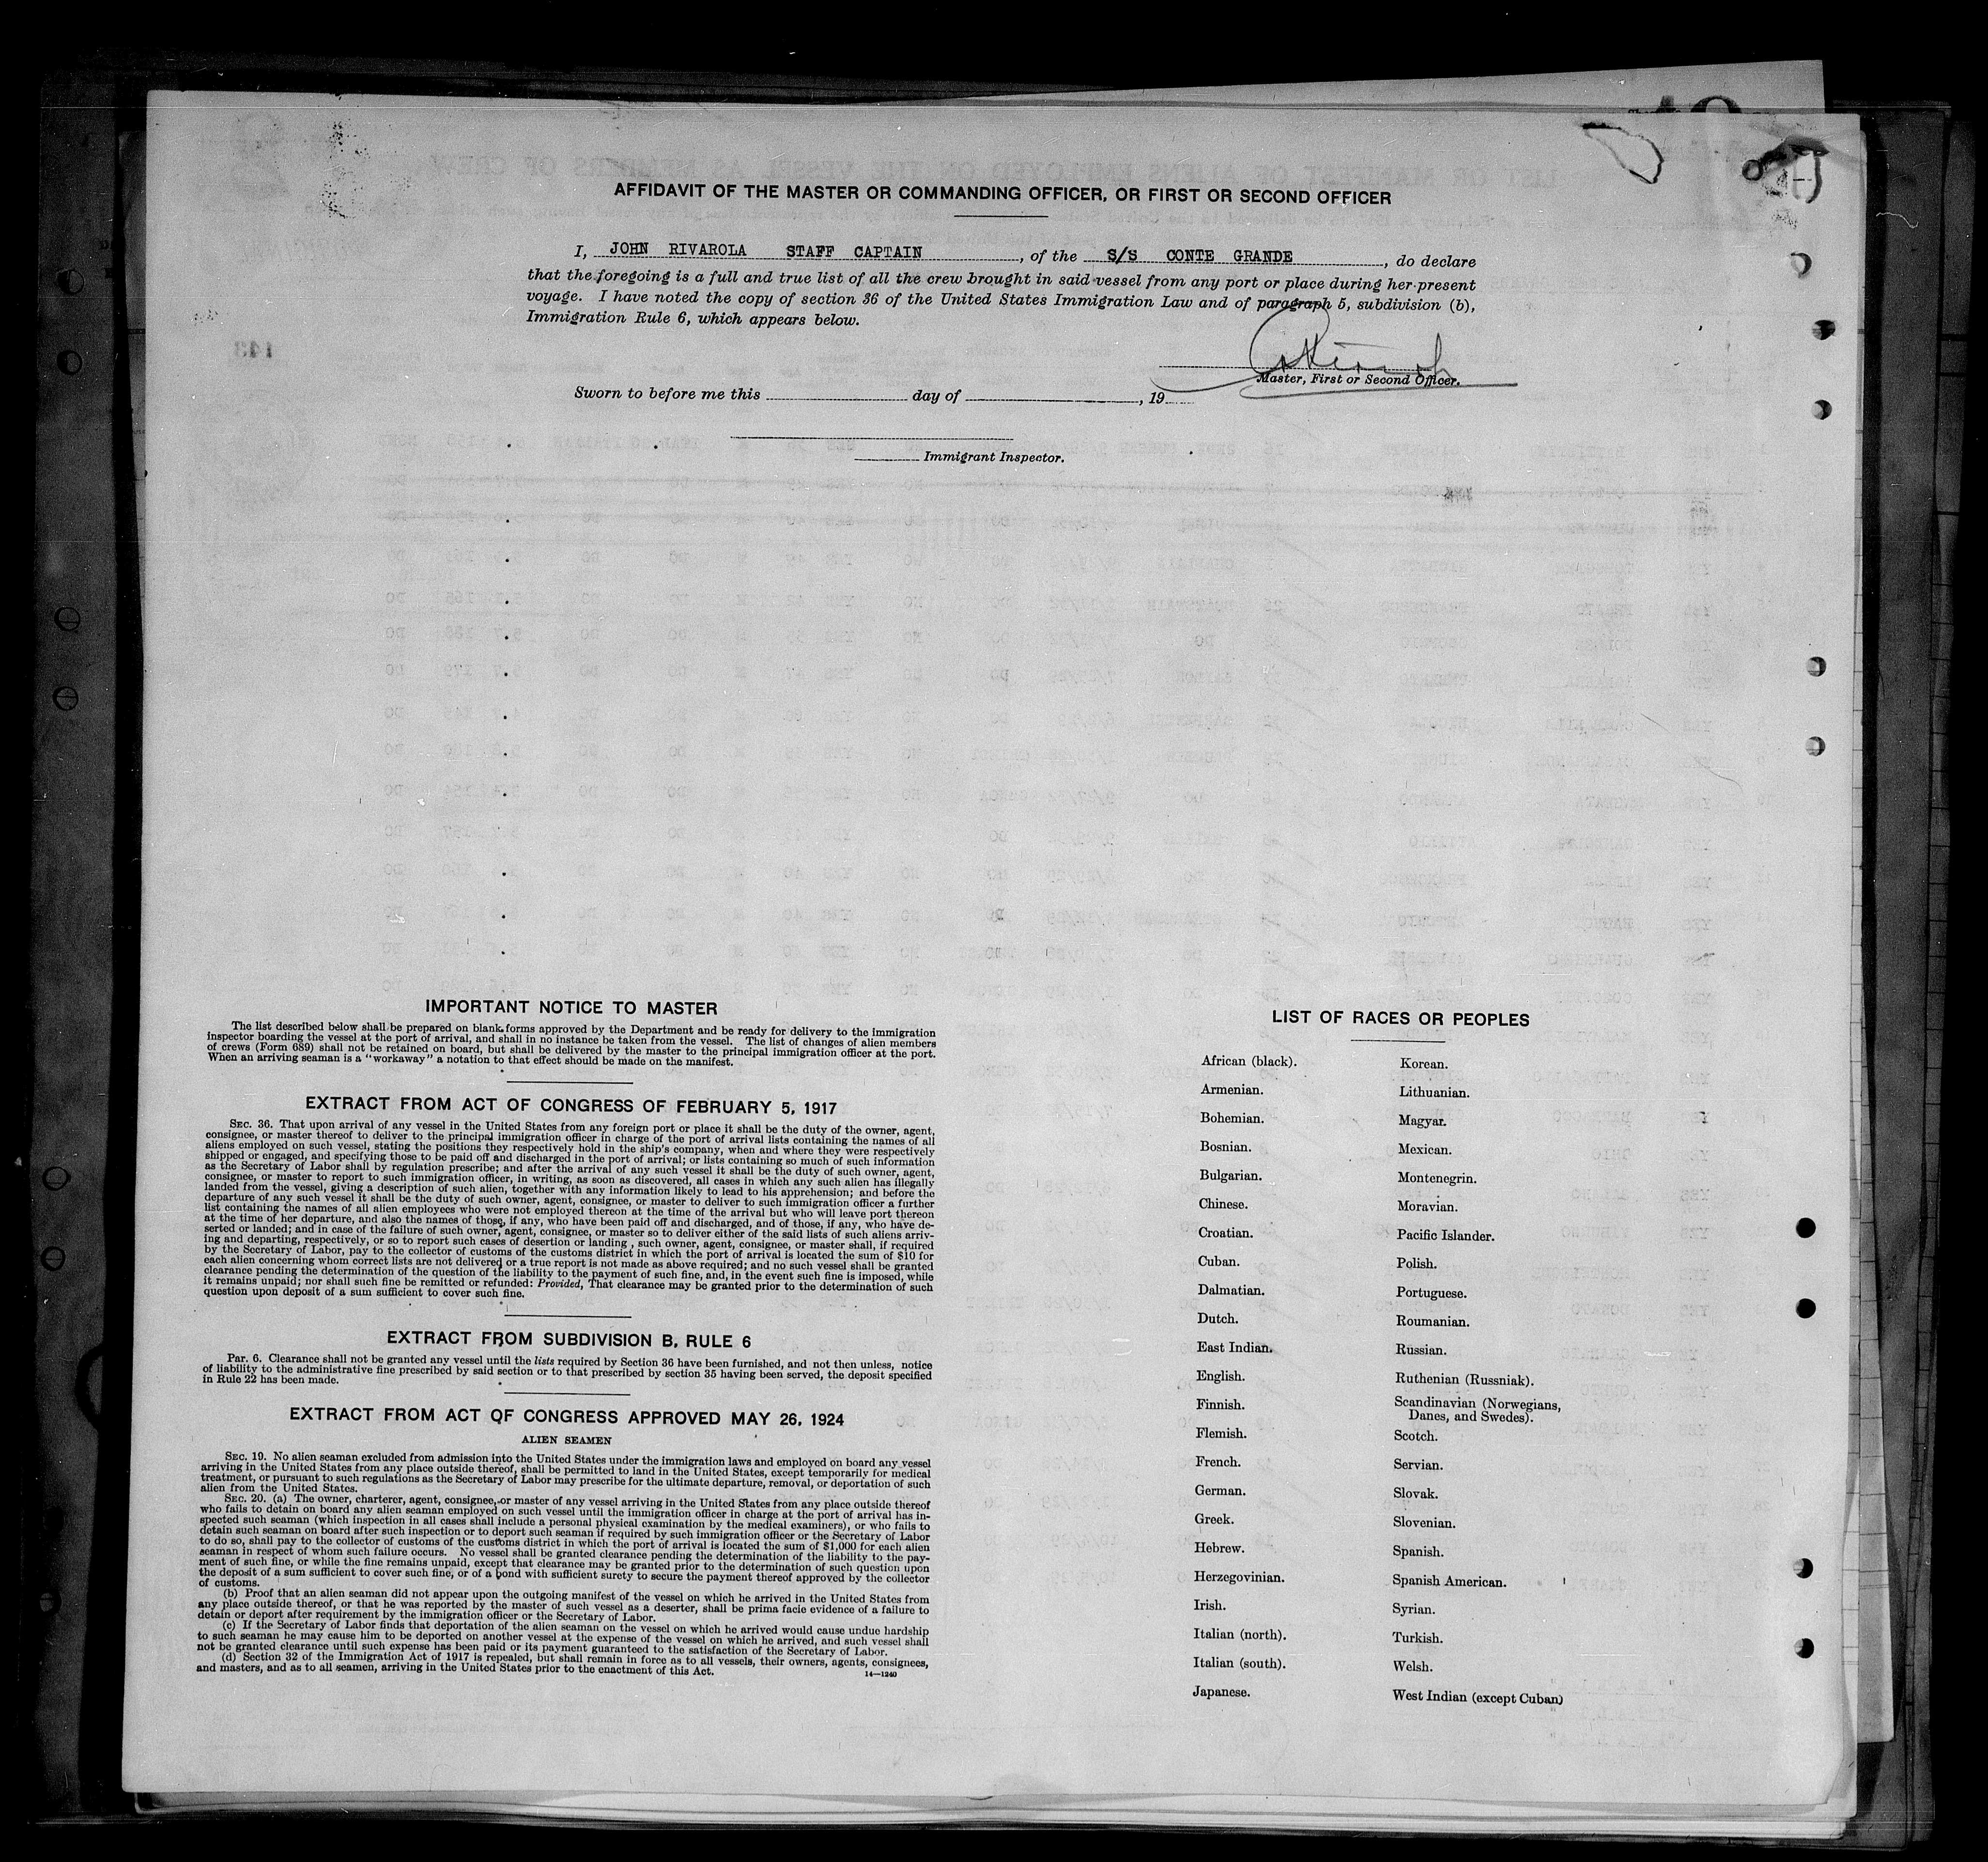 AFFIDAVIT OF THE MASTER OR COMMANDING OFFICER, OR FIRST OR SECOND OFFICER
I, JOHN RIVAROLA STAFF CAPTAIN, of the S/S CONTE GRANDE, do declare
that the foregoing is a full and true list of all the crew brought in said vessel from any port or place during her present
voyage. I have noted the copy of section 36 of the United States Immigration Law and of paragraph 5, subdivision (b),
Immigration Rule 6, which appears below.
Master, First or Second Officer.
Sworn to before me this day of , 19
Immigrant Inspector.
IMPORTANT NOTICE TO MASTER
The list described below shall be prepared on blank forms approved by the Department and be ready for delivery to the immigration
inspector boarding the vessel at the port of arrival, and shall in no instance be taken from the vessel. The list of changes of alien members
of crews (Form 689) shall not be retained on board, but shall be delivered by the master to the principal immigration officer at the port.
When an arriving seaman is a "workaway" a notation to that effect should be made on the manifest.
EXTRACT FROM ACT OF CONGRESS OF FEBRUARY 5, 1917
SEC. 36. That upon arrival of any vessel in the United States from any foreign port or place it shall be the duty of the owner, agent,
consignee, or master thereof to deliver to the principal immigration officer in charge of the port of arrival lists containing the names of all
aliens employed on such vessel, stating the positions they respectively hold in the ship's company, when and where they were respectively
shipped or engaged, and specifying those to be paid off and discharged in the port of arrival; or lists containing so much of such information
as the Secretary of Labor shall by regulation prescribe; and after the arrival of any such vessel it shall be the duty of such owner, agent,
consignee, or master to report to such immigration officer, in writing, as soon as discovered, all cases in which any such alien has illegally
landed from the vessel, giving a description of such alien, together with any information likely to lead to his apprehension; and before the
departure of any such vessel it shall be the duty of such owner, agent, consignee, or master to deliver to such immigration officer a further
list containing the names of all alien employees who were not employed thereon at the time of the arrival but who will leave port thereon
at the time of her departure, and also the names of those, if any, who have been paid off and discharged, and of those, if any, who have de-
serted or landed; and in case of the failure of such owner, agent, consignee, or master so to deliver either of the said lists of such aliens arriv-
ing and departing, respectively, or so to report such cases of desertion or landing , such owner, agent, consignee, or master shall, if required
by the Secretary of Labor, pay to the collector of customs of the customs district in which the port of arrival is located the sum of $10 for
each alien concerning whom correct lists are not delivered or a true report is not made as above required; and no such vessel shall be granted
clearance pending the determination of the question of the liability to the payment of such fine, and, in the event such fine is imposed, while
it remains unpaid; nor shall such fine be remitted or refunded: Provided, That clearance may be granted prior to the determination of such
question upon deposit of a sum sufficient to cover such fine.
EXTRACT FROM SUBDIVISION B, RULE 6
PAR. 6. Clearance shall not be granted any vessel until the lists required by Section 36 have been furnished, and not then unless, notice
of liability to the administrative fine prescribed by said section or to that prescribed by section 35 having been served, the deposit specified
in Rule 22 has been made.
EXTRACT FROM ACT OF CONGRESS APPROVED MAY 26, 1924
ALIEN SEAMEN
SEC. 19. No alien seaman excluded from admission into the United States under the immigration laws and employed on board any vessel
arriving in the United States from any place outside thereof, shall be permitted to land in the United States, except temporarily for medical
treatment, or pursuant to such regulations as the Secretary of Labor may prescribe for the ultimate departure, removal, or deportation of such
alien from the United States.
SEC. 20. (a) The owner, charterer, agent, consignee, or master of any vessel arriving in the United States from any place outside thereof
who fails to detain on board any alien seaman employed on such vessel until the immigration officer in charge at the port of arrival has in-
spected such seaman (which inspection in all cases shall include a personal physical examination by the medical examiners), or who fails to
detain such seaman on board after such inspection or to deport such seaman if required by such immigration officer or the Secretary of Labor
to do so, shall pay to the collector of customs of the customs district in which the port of arrival is located the sum of $1,000 for each alien
seaman in respect of whom such failure occurs. No vessel shall be granted clearance pending the determination of the liability to the pay-
ment of such fine, or while the fine remains unpaid, except that clearance may be granted prior to the determination of such question upon
the deposit of a sum sufficient to cover such fine, or of a bond with sufficient surety to secure the payment thereof approved by the collector
of customs.
(b) Proof that an alien seaman did not appear upon the outgoing manifest of the vessel on which he arrived in the United States from
any place outside thereof, or that he was reported by the master of such vessel as a deserter, shall be prima facie evidence of a failure to
detain or deport after requirement by the immigration officer or the Secretary of Labor.
(c) If the Secretary of Labor finds that deportation of the alien seaman on the vessel on which he arrived would cause undue hardship
to such seaman he may cause him to be deported on another vessel at the expense of the vessel on which he arrived, and such vessel shall
not be granted clearance until such expense has been paid or its payment guaranteed to the satisfaction of the Secretary of Labor.
(d) Section 32 of the Immigration Act of 1917 is repealed, but shall remain in force as to all vessels, their owners, agents, consignees,
and masters, and as to all seamen, arriving in the United States prior to the enactment of this Act.
14—1240
LIST OF RACES OR PEOPLES
African (black).
Armenian.
Bohemian.
Bosnian.
Bulgarian.
Chinese.
Croatian.
Cuban.
Dalmatian.
Dutch.
East Indian.
English.
Finnish.
Flemish.
French.
German.
Greek.
Hebrew.
Herzegovinian.
Irish.
Italian (north).
Italian (south).
Japanese.
Korean.
Lithuanian.
Magyar.
Mexican.
Montenegrin.
Moravian.
Pacific Islander.
Polish.
Portuguese.
Roumanian.
Russian.
Ruthenian (Russniak).
Scandinavian (Norwegians,
Danes, and Swedes).
Scotch.
Servian.
Slovak.
Slovenian.
Spanish.
Spanish American.
Syrian.
Turkish.
Welsh.
West Indian (except Cuban)